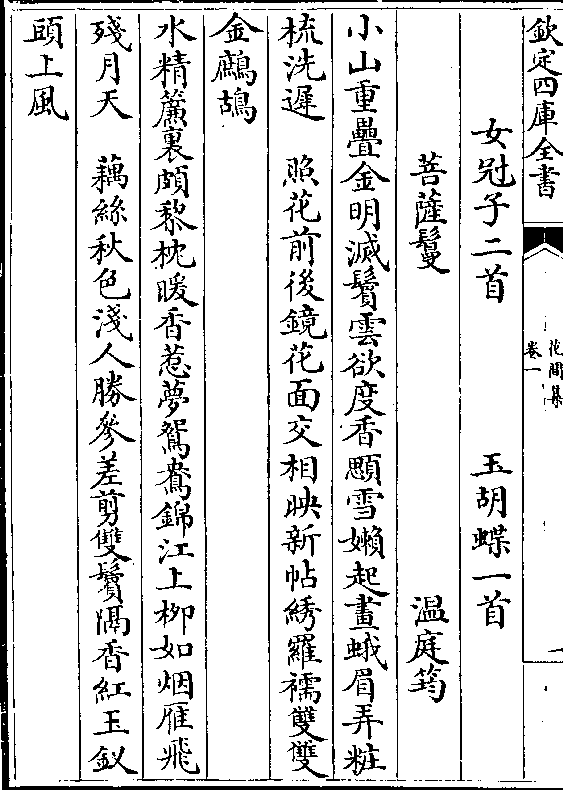 欽定四庫全書
花間集
卷一
一
女冠子二首 玉胡蝶一首
菩薩鬘 温庭筠
小山重疊金明滅鬢雲欲度香顋雪嬾起畫蛾眉弄粧
梳洗遲 照花前後鏡花面交相映新帖綉羅襦雙雙
金鷓鴣
水精簾裏頗黎枕暖香惹夢鴛鴦錦江上栁如烟雁飛
殘月天 藕絲秋色淺人勝參差剪雙鬢隔香紅玉釵
頭上風